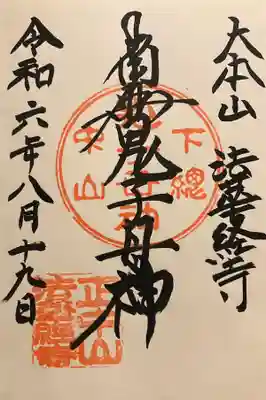 大本山 法華経寺
南無鬼子母神
令和六年八月十九日
下總
中山
正中山